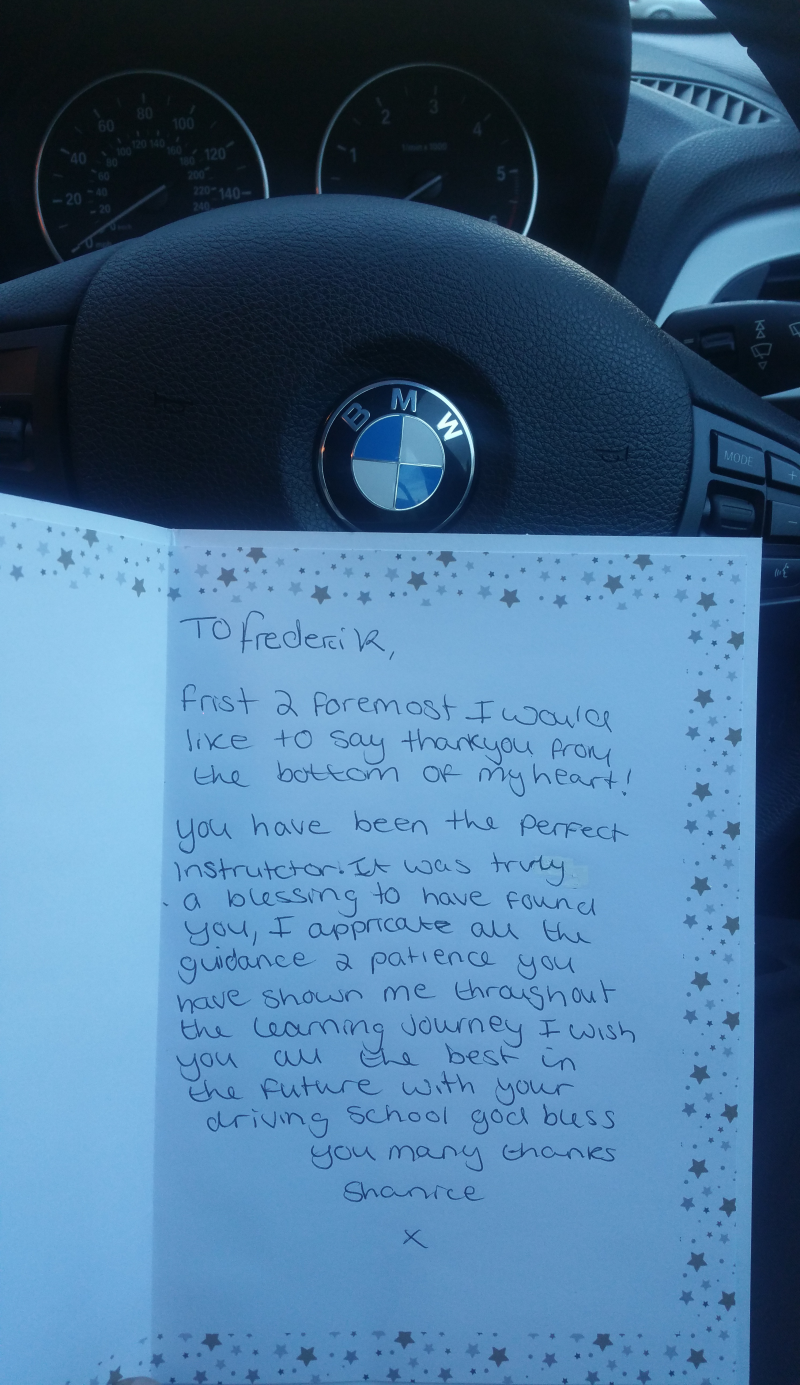 20
40
60
80
100
120
140
20
40
60
80
100
120
140
160
180
200
220
240
0
0
mph
1
2
3
4
5
BMW
MODE
+
-
TO frederik,
frist 2 foremost I would
like to say thankyou from
the bottom of my heart!
you have been the perfect
instrutctor. It was truly
a blessing to have found
you, I appricate all the
guidance 2 patience you
have shown me throughout
the learning journey I wish
you all the best in
the future with your
driving school god bless
you many thanks
Shanice
x